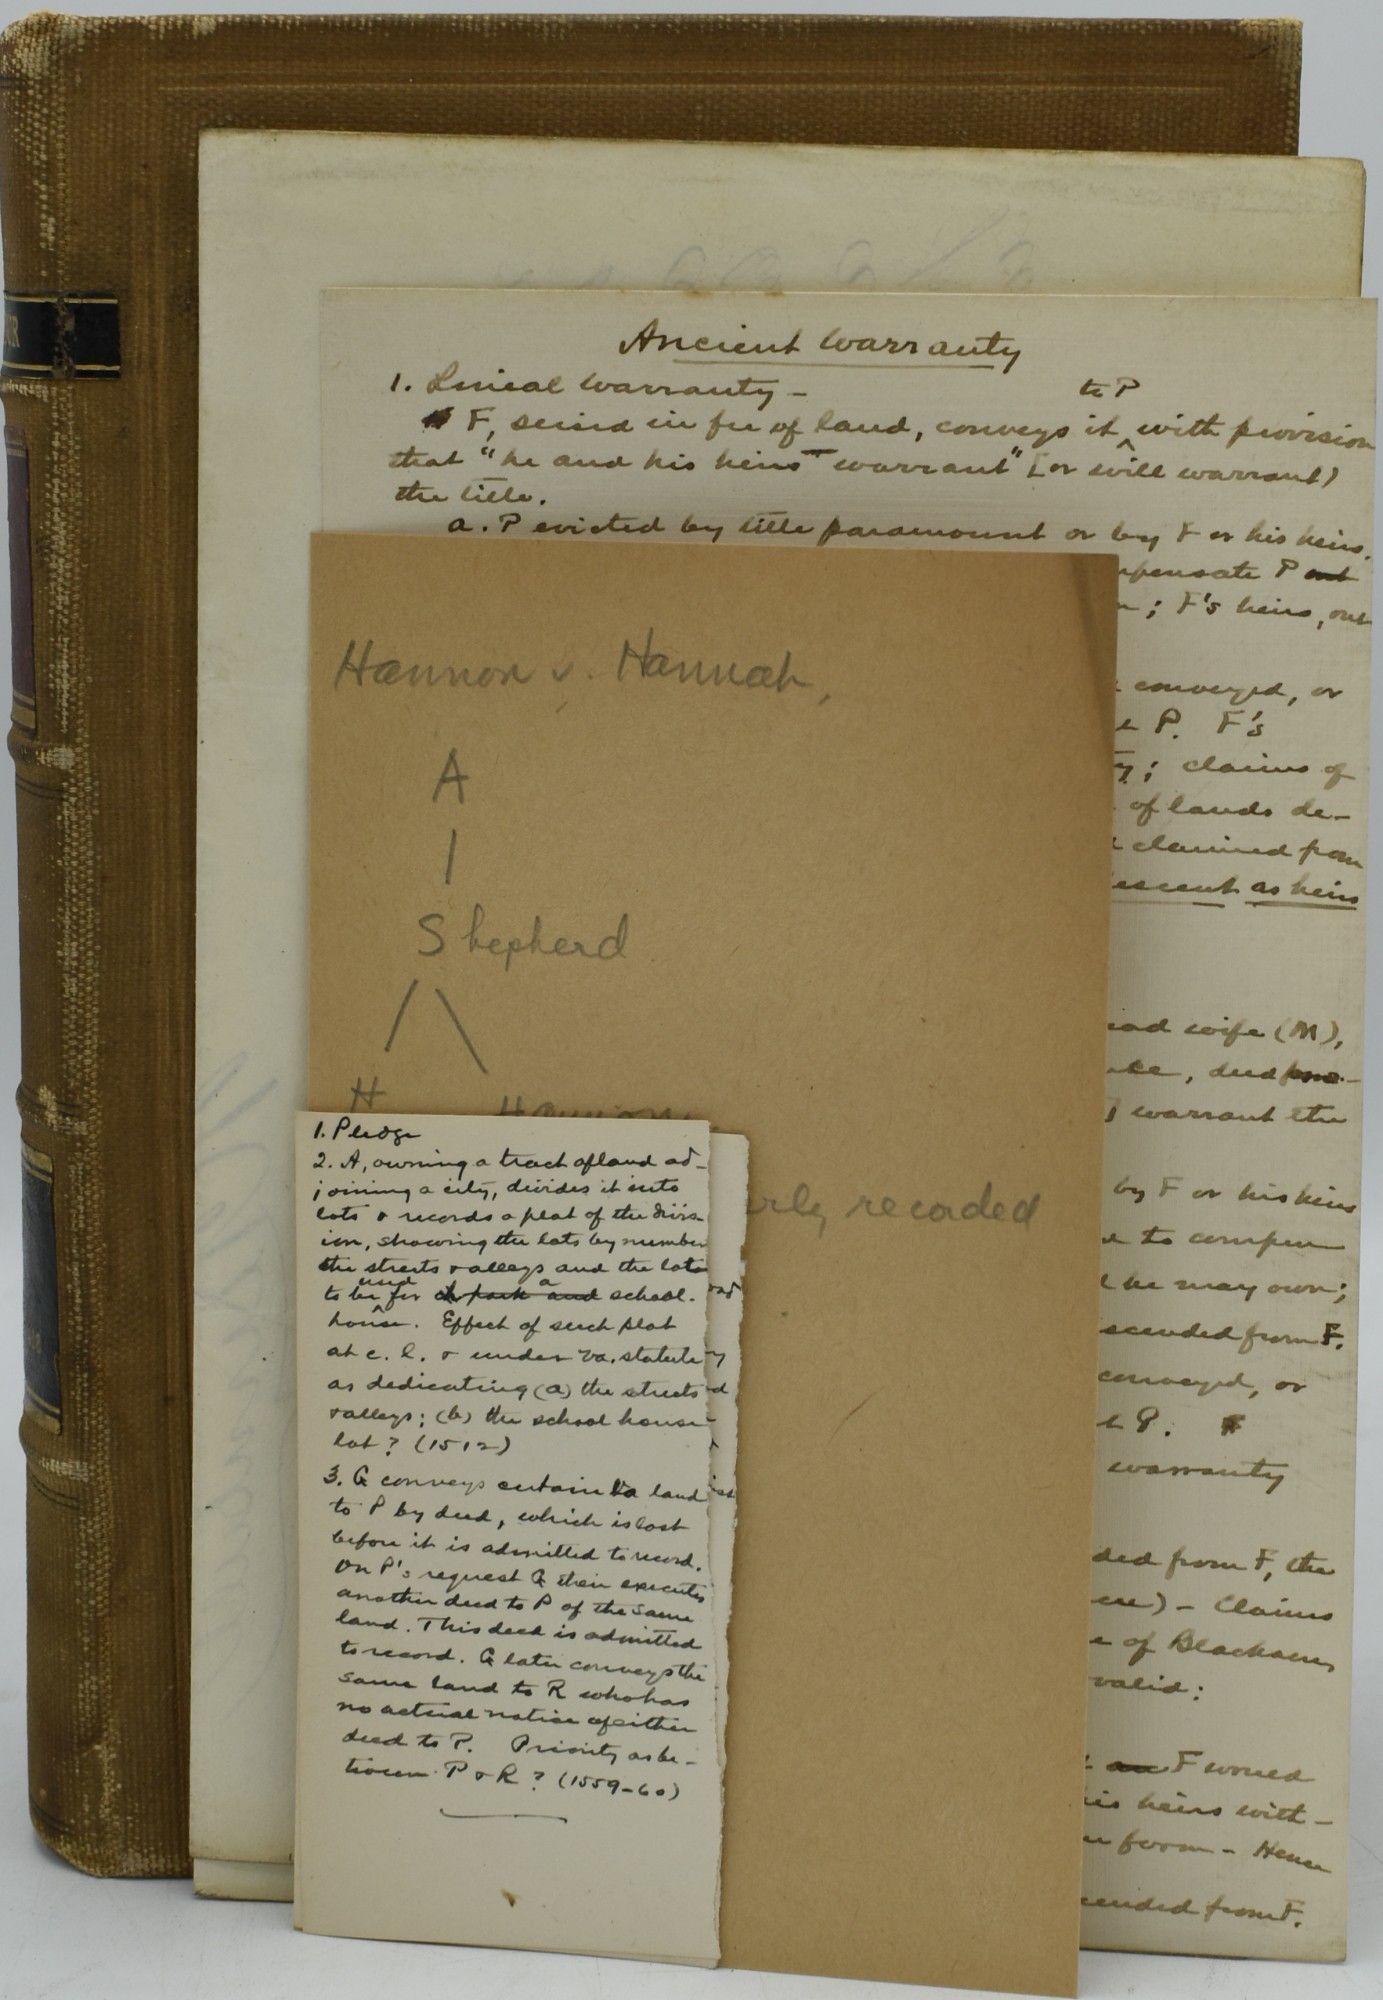 Ancient Warranty
1. Lineal Warranty -
to P
F, seised in fee of land, conveys it ^ with provision
that "he and his heirs warrant" [or will warrant)
the title.
a. P evicted by title paramount or by F or his heirs.
mpensate P out
; F's heirs, out
conveyed, or
P. F's
ty; claims of
of lands de-
claimed from
escent as heirs
wife (M),
deed
warrant the
by F or his heirs
to compen
he may own;
scended from F.
conveyed, or
P.
warranty
ded from F, the
- Claims
of Blackacre,
valid:
an F would
his heirs with-
form - Hence
cended from F.
Hannon v. Hannah,
A
Shepherd
H
Hannon
erly recorded
1. Pledge
2. A, owning a tract of land ad-
joining a city, divides it into
lots & records a plat of the divis-
ion, showing the lots by number
the streets & alleys and the lots
used a
to be ^ for park and school-
house. Effect of such plat
at c. l. & under Va. statute
as dedicating (a) the streets
& alleys; (b) the school house
lot? (1512)
3. G conveys certain Va land
to P by deed, which is lost
before it is admitted to record.
On P's request G then executes
another deed to P of the same
land. This deed is admitted
to record. G later conveys the
same land to R who has
no actual notice of either
deed to P. Priority as be-
tween P & R? (1559-60)